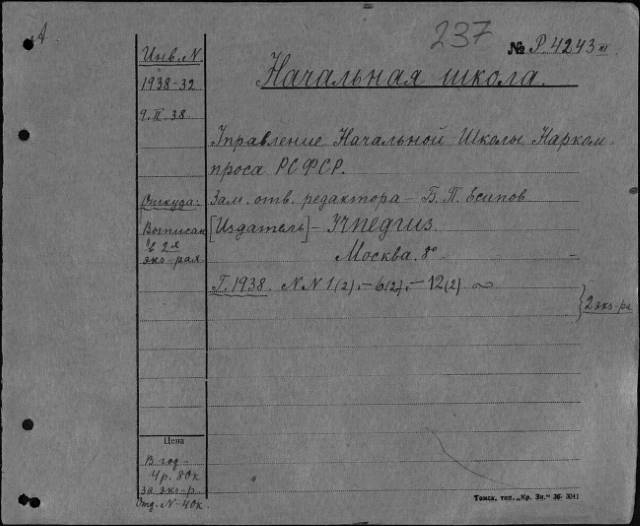 237
№ Р.4243 III
Начальная школа.
Инв. N.
1938-32
9.II.38.
Управление Начальной Школы Нарком
проса РСФСР.
Откуда:
Зам. отв. редактора – Б. П. Есипов
Выписан
в 2х
экз-рах
[Издатель] – Учпедгиз
Москва. 8°
Г. 1938. N N 1(2). – 6(2). – 12(2)
2 экз-ра
Цена
В год –
4 р. 80 к
за экз-р.
Отд. N – 40 к.
Томск, тип. „Кр. Зн.“ 36- 3041